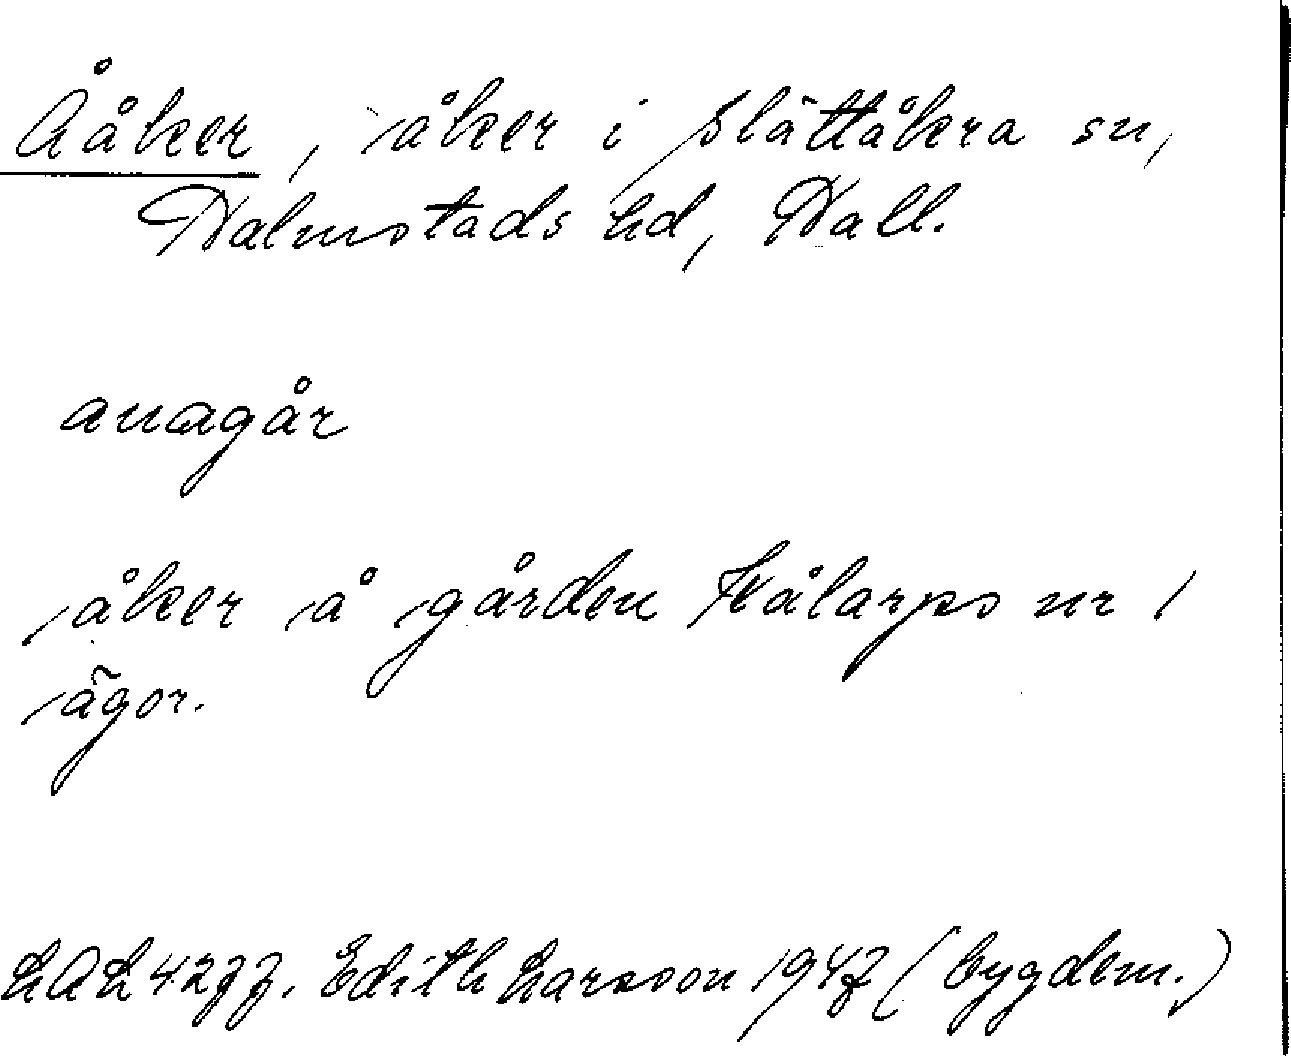 Ååker, åker i Slättåkra sn,
Halmstads hd, Hall.
åker å gården Kålarps nr 1
ägor.
LAL 4277. Edith Larsson 1947 (bygdem.)